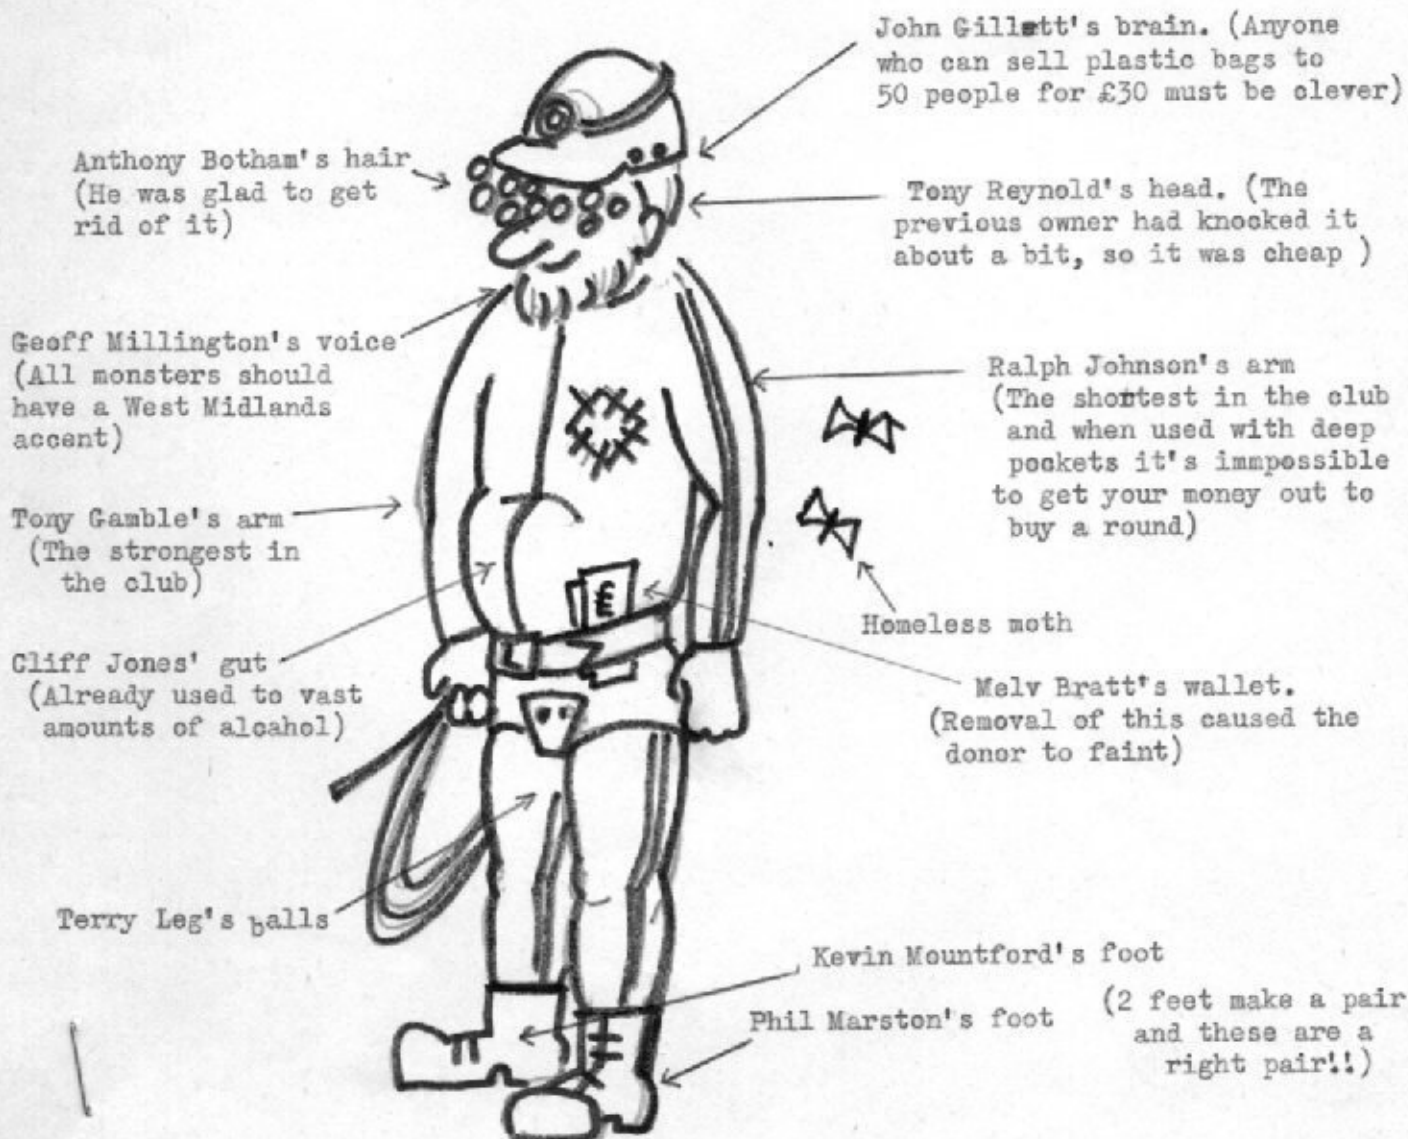 John Gillett's brain. (Anyone
who can sell plastic bags to
50 people for £30 must be clever)
Anthony Botham's hair
(He was glad to get
rid of it)
Tony Reynold's head. (The
previous owner had knocked it
about a bit, so it was cheap )
Geoff Millington's voice
(All monsters should
have a West Midlands
accent)
Ralph Johnson's arm
(The shortest in the club
and when used with deep
pockets it's immpossible
to get your money out to
buy a round)
Tony Gamble's arm
(The strongest in
the club)
£
Homeless moth
Cliff Jones' gut
(Already used to vast
amounts of alcahol)
Melv Bratt's wallet.
(Removal of this caused the
donor to faint)
Terry Leg's balls
Kevin Mountford's foot
Phil Marston's foot
(2 feet make a pair
and these are a
right pair!!)